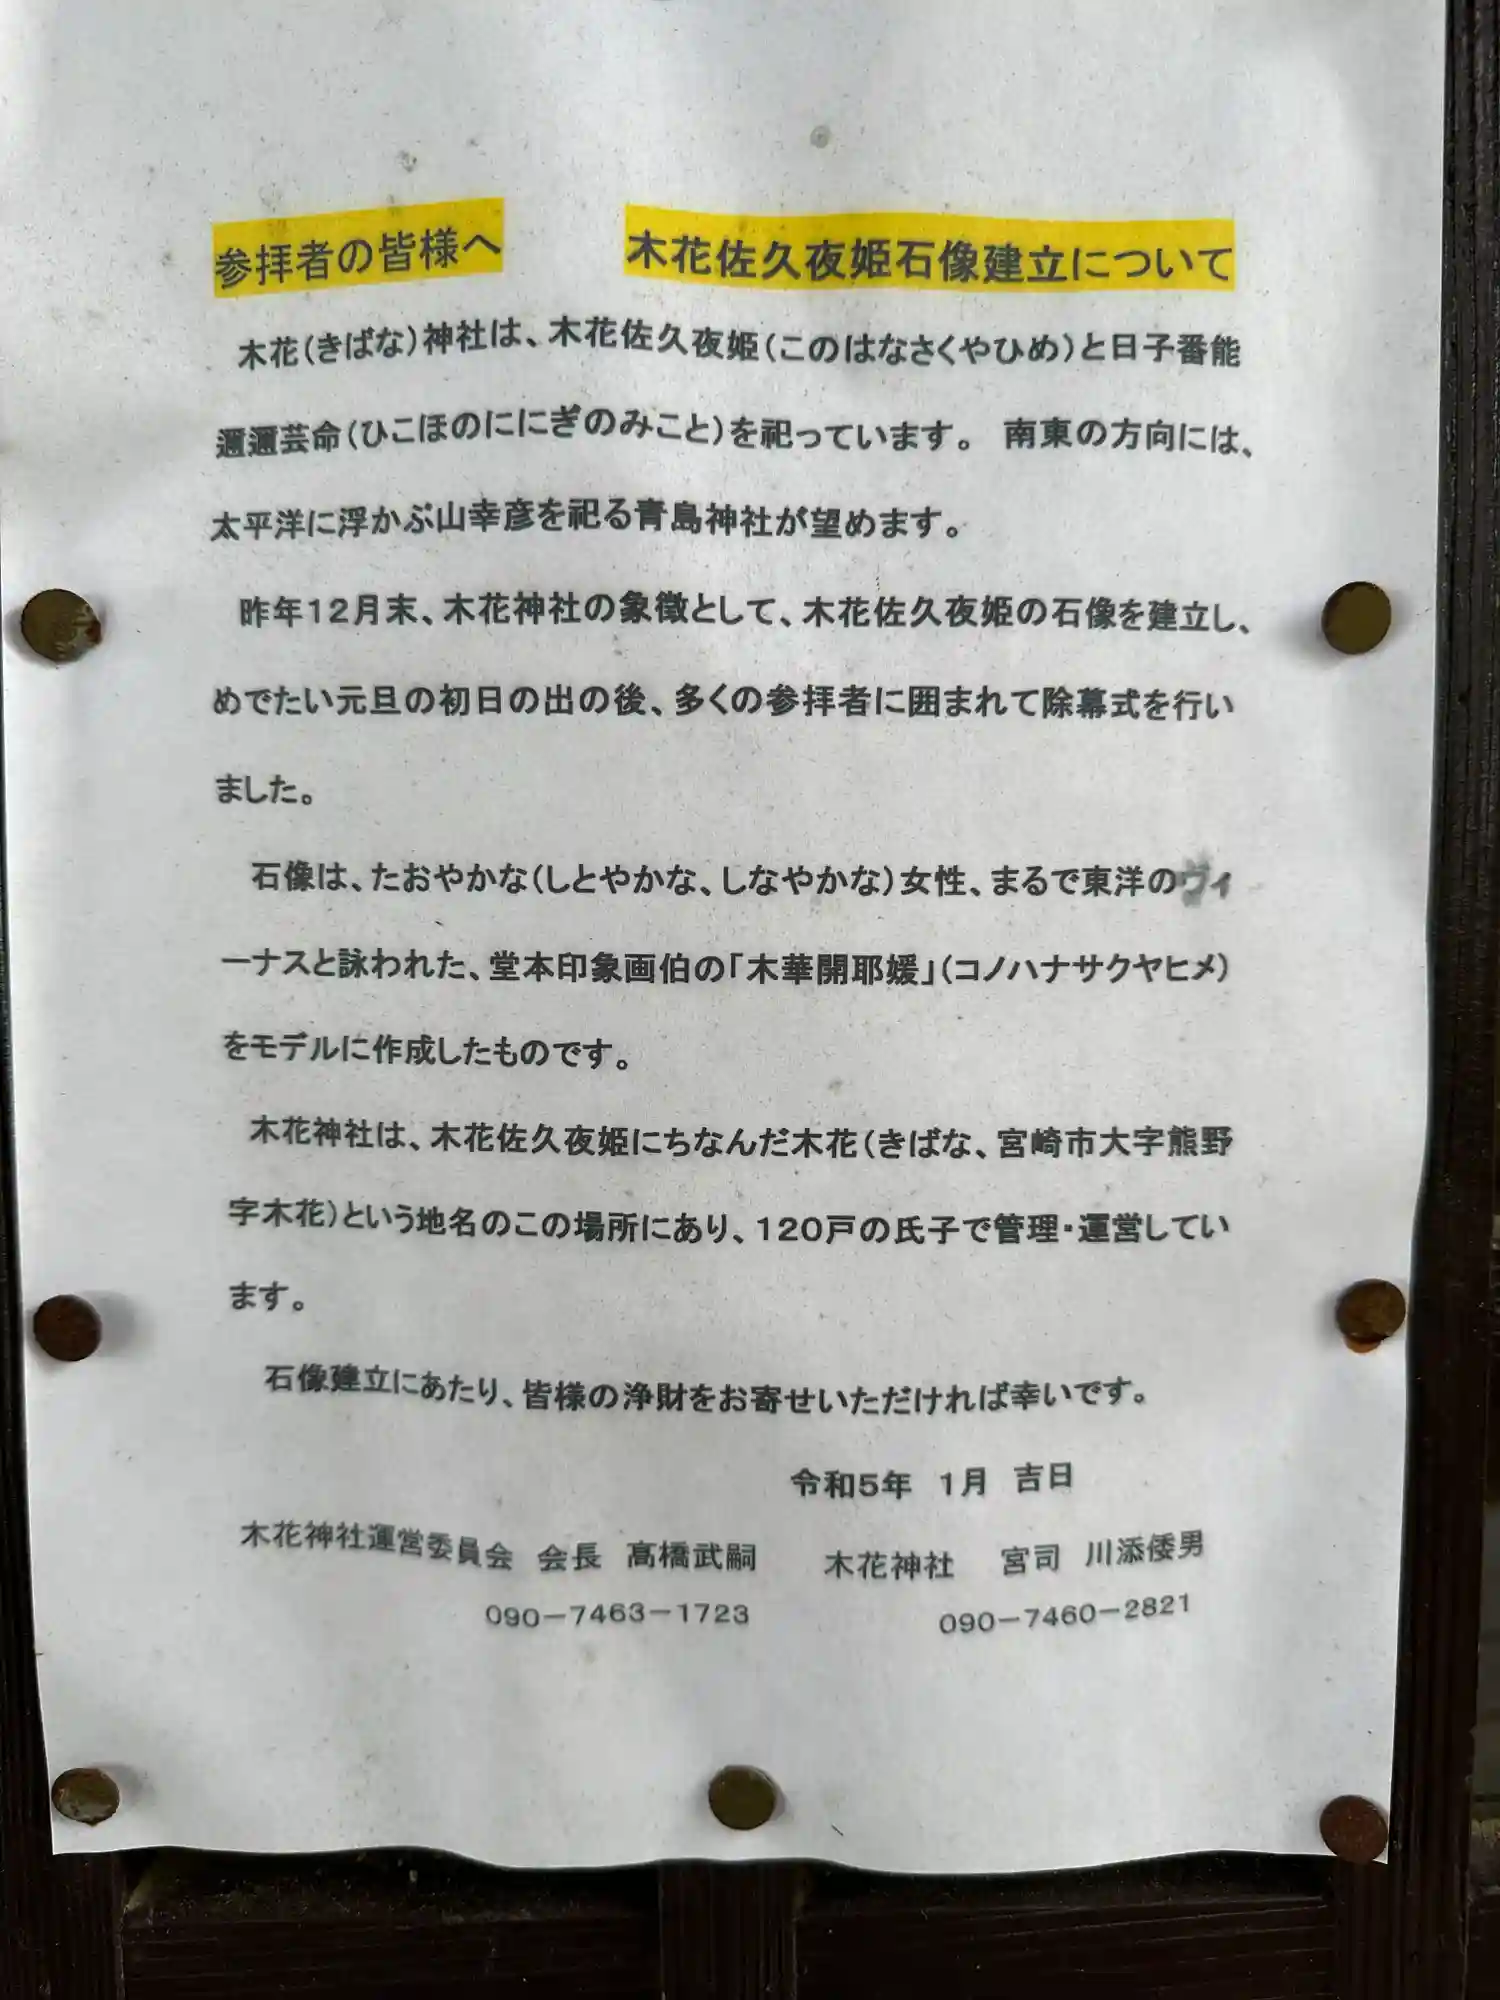 参拝者の皆様へ　木花佐久夜姫石像建立について
木花(きばな)神社は、木花佐久夜姫(このはなさくやひめ)と日子番能
邇邇芸命(ひこほのににぎのみこと)を祀っています。　南東の方向には、
太平洋に浮かぶ山幸彦を祀る青島神社が望めます。
昨年12月末、木花神社の象徴として、木花佐久夜姫の石像を建立し、
めでたい元旦の初日の出の後、多くの参拝者に囲まれて除幕式を行い
ました。
石像は、たおやかな(しとやかな、しなやかな)女性、まるで東洋のヴィ
ーナスと詠われた、堂本印象画伯の「木華開耶媛」(コノハナサクヤヒメ)
をモデルに作成したものです。
木花神社は、木花佐久夜姫にちなんだ木花(きばな、宮崎市大字熊野
字木花)という地名のこの場所にあり、120戸の氏子で管理・運営してい
ます。
石像建立にあたり、皆様の浄財をお寄せいただければ幸いです。
令和5年　1月　吉日
木花神社運営委員会　会長　髙橋武嗣　木花神社　宮司　川添倭男
090－7463－1723　090－7460－2821